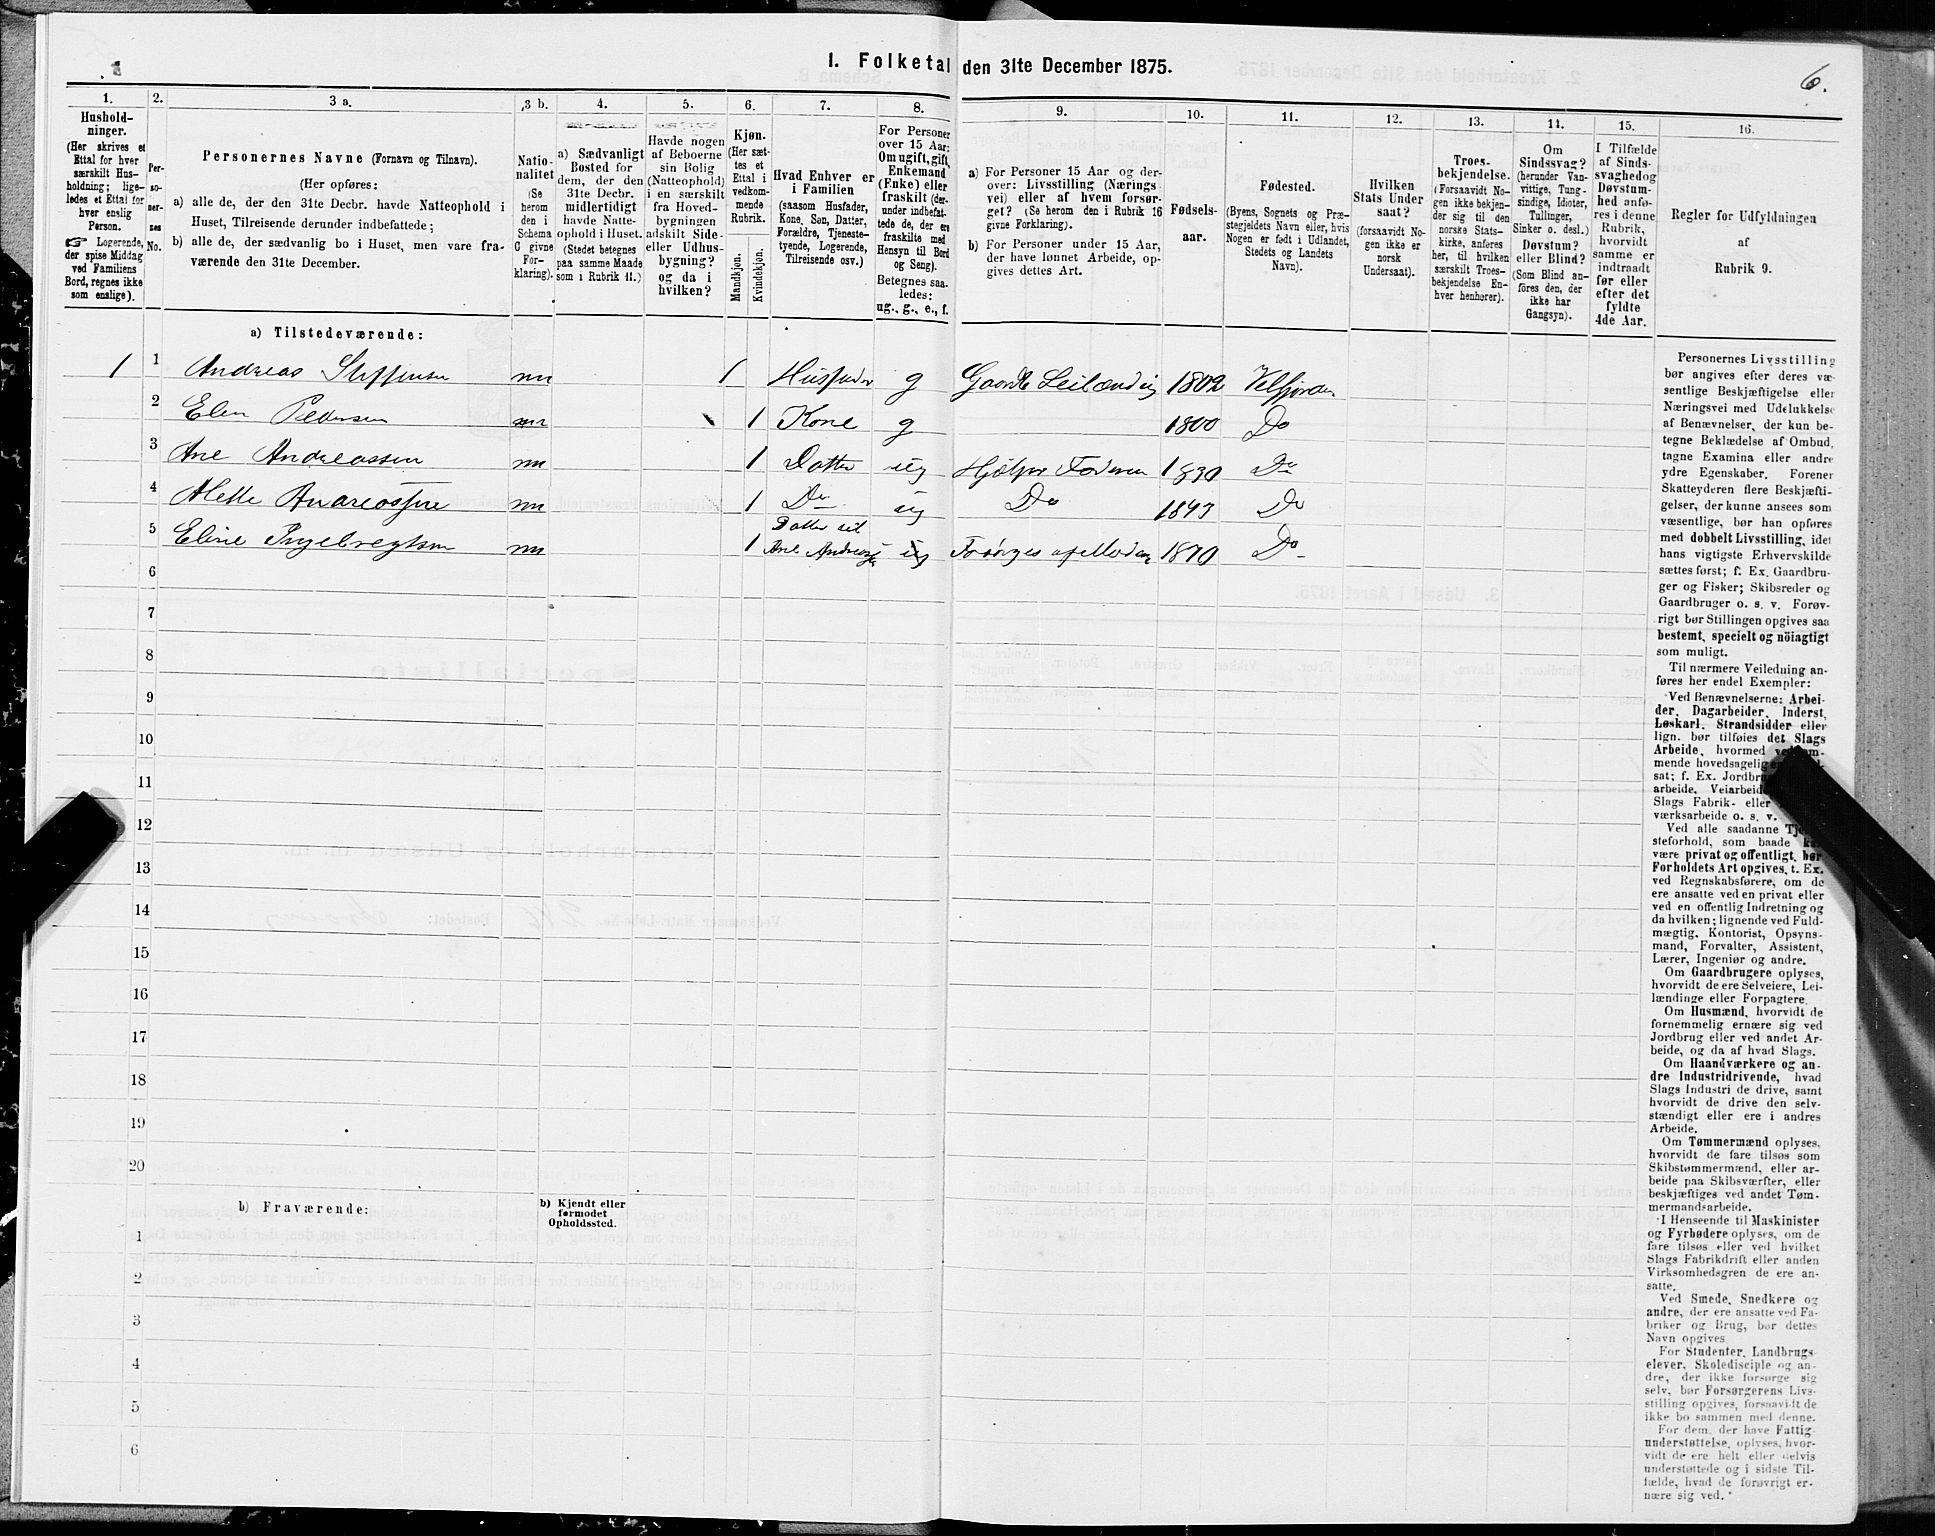 1. Folketal den 31te December 1875.
6.
1.
2.
3 a.
3 b.
4.
5.
6.
7.
8.
9.
10.
11.
12.
13.
14.
15.
16.
Hushold-
ninger.
(Her skrives et
Ettal for hver
særskilt Hus-
holdning; lige-
ledes et Ettal for
hver enslig
Person.
☞ Logerende,
der spise Middag
ved Familiens
Bord, regnes ikke
som enslige).
Per-
so-
ner-
nes
No.
Personernes Navne (Fornavn og Tilnavn).
(Her opføres:
a) alle de, der den 31te Decbr. havde Natteophold i
Huset, Tilreisende derunder indbefattede;
b) alle de, der sædvanlig bo i Huset, men vare fra-
værende den 31te December.
Natio-
nalitet
(Se
herom
den i
Schema
C givne
For-
klaring).
a) Sædvanligt
Bosted for
dem, der den
31te Decbr.
midlertidigt
havde Natte-
ophold i Huset.
(Stedet betegnes
paa samme Maade
som i Rubrik 11.)
Havde nogen
af Beboerne
sin Bolig
(Natteophold)
i en særskilt
fra Hoved-
bygningen
adskilt Side-
eller Udhus-
bygning?
og da i
hvilken?
Kjøn.
(Her sæt-
tes et
Ettal i
vedkom-
mende
Rubrik.
Mandkjøn.
Kvindekjøn.
Hvad Enhver er
i Familien
(saasom Husfader,
Kone, Søn, Datter,
Forældre, Tjeneste-
tyende, Logerende,
Tilreisende osv.)
For Personer
over 15 Aar:
Om ugift, gift,
Enkemand
(Enke) eller
fraskilt (der-
under indbefat-
tede de, der ere
fraskilte med
Hensyn til Bord
og Seng).
Betegnes saa-
ledes:
ug., g., e., f.
a) For Personer 15 Aar og der-
over: Livsstilling (Nærings-
vei) eller af hvem forsør-
get? (Se herom den i Rubrik 16
givne Forklaring).
b) For Personer under 15 Aar,
der have lønnet Arbeide, op-
gives dettes Art.
Fødsels-
aar.
Fødested.
(Byens, Sognets og Præ-
stegjeldets Navn eller, hvis
Nogen er født i Udlandet,
Stedets og Landets
Navn).
Hvilken
Stats Under
saat?
(forsaavidt No-
gen ikke er
norsk
Undersaat).
Troes-
bekjendelse.
(Forsaavidt No-
gen ikke bekjen-
der sig til den
norske Stats-
kirke, anføres
her, til hvilken
særskilt Troes-
bekjendelse En-
hver henhører).
Om
Sindssvag?
(herunder Van-
vittige, Tung-
sindige, Idioter,
Tullinger,
Sinker o. desl.)
Døvstum?
eller Blind?
(Som Blind an-
føres den, der
ikke har
Gangsyn).
I Tilfælde
af Sinds-
svaghed og
Døvstum-
hed anfø-
res i denne
Rubrik,
hvorvidt
samme er
indtraadt
før eller
efter det
fyldte
4de Aar.
Regler for Udfyldningen
af
Rubrik 9.
a) Tilstedeværende:
1 1 Andreas Steffensen nn 1 Husfader g Gaardb Leilænding 1802 Velfjorden
2 Elen Pedersen nn 1 Kone g 1800 Do
3 Ane Andreassen nn 1 Datter ug Hjelper Faderen 1830 Do
4 Mette Andreassen nn 1 Do ug Do 1843 Do
Datter til
5 Eline Ingebregtsen nn 1 Ane Andreassen ug Forsørges af Moderen 1870 Do
6
7
8
9
10
11
12
13
14
15
16
17
18
19
20
b) Fraværende:
b) Kjendt eller
formodet
Opholdssted.
1
2
3
4
5
6
Personernes Livsstilling
bør angives efter deres væ-
sentlige Beskjæftigelse eller
Næringsvei med Udelukkelse
af Benævnelser, der kun be-
tegne Beklædelse af Ombud,
tagne Examina eller andre
ydre Egenskaber. Forener
Skatteyderen flere Beskjæfti-
gelser, der kunne ansees som
væsentlige, bør han opføres
med dobbelt Livsstilling, idet
hans vigtigste Erhvervskilde
sættes først; f. Ex. Gaardbru-
ger og Fisker; Skibsreder og
Gaardbruger o. s. v. Forøv-
rigt bør Stillingen opgives saa
bestemt, specielt og nöiagtigt
som muligt.
Til nærmere Veiledning an-
føres her endel Exempler:
Ved Benævnelserne: Arbei-
der, Dagarbeider, Inderst,
Løskarl, Strandsidder eller
lign. bør tilføies det Slags
Arbeide, hvormed
mende hovedsagelig
sat; f. Ex.
arbeide,
Slags Fabrik- eller
værksarbeide o. s. v.
Ved alle saadanne
steforhold, som baade
være privat og offentligt, bør
Forholdets Art opgives, t. Ex.
ved Regnskabsførere, om de
ere ansatte ved en privat eller
ved en offentlig Indretning og
da hvilken; lignende ved Fuld-
mægtig, Kontorist, Opsyns-
mand, Forvalter, Assistent,
Lærer, Ingeniør og andre.
Om Gaardbrugere oplyses,
hvorvidt de ere Selveiere, Lei-
lændinge eller Forpagtere.
Om Husmænd, hvorvidt de
fornemmelig ernære sig ved
Jordbrug eller ved andet Ar-
beide, og da af hvad Slags.
Om Haandværkere og an-
dre Industridrivende, hvad
Slags Industri de drive, samt
hvorvidt de drive den selv-
stændigt eller ere i andres
Arbeide.
Om Tømmermænd oplyses,
hvorvidt de fare tilsøs som
Skibstømmermænd, eller ar-
beide paa Skibsværfter, eller
beskjæftiges ved andet Tøm-
mermandsarbeide.
I Henseende til Maskinister
og Fyrbødere oplyses, om de
fare tilsøs eller ved hvilket
Slags Fabrikdrift eller anden
Virksomhedsgren de ere an-
satte.
Ved Smede, Snedkere og
andre, der ere ansatte ved Fa-
briker og Brug, bør dettes
Navn opgives
For Studenter, Landbrugs-
elever, Skoledisciple og an-
dre, der ikke forsørge sig
selv, bør Forsørgerens Livs-
stilling opgives, forsaavidt de
ikke bo sammen med denne.
For dem, der have Fattig-
understøttelse, oplyses, hvor-
vidt de ere helt eller delvis
understøttede og i sidste Til-
fælde, hvad de forøvrigt er-
nære sig ved.